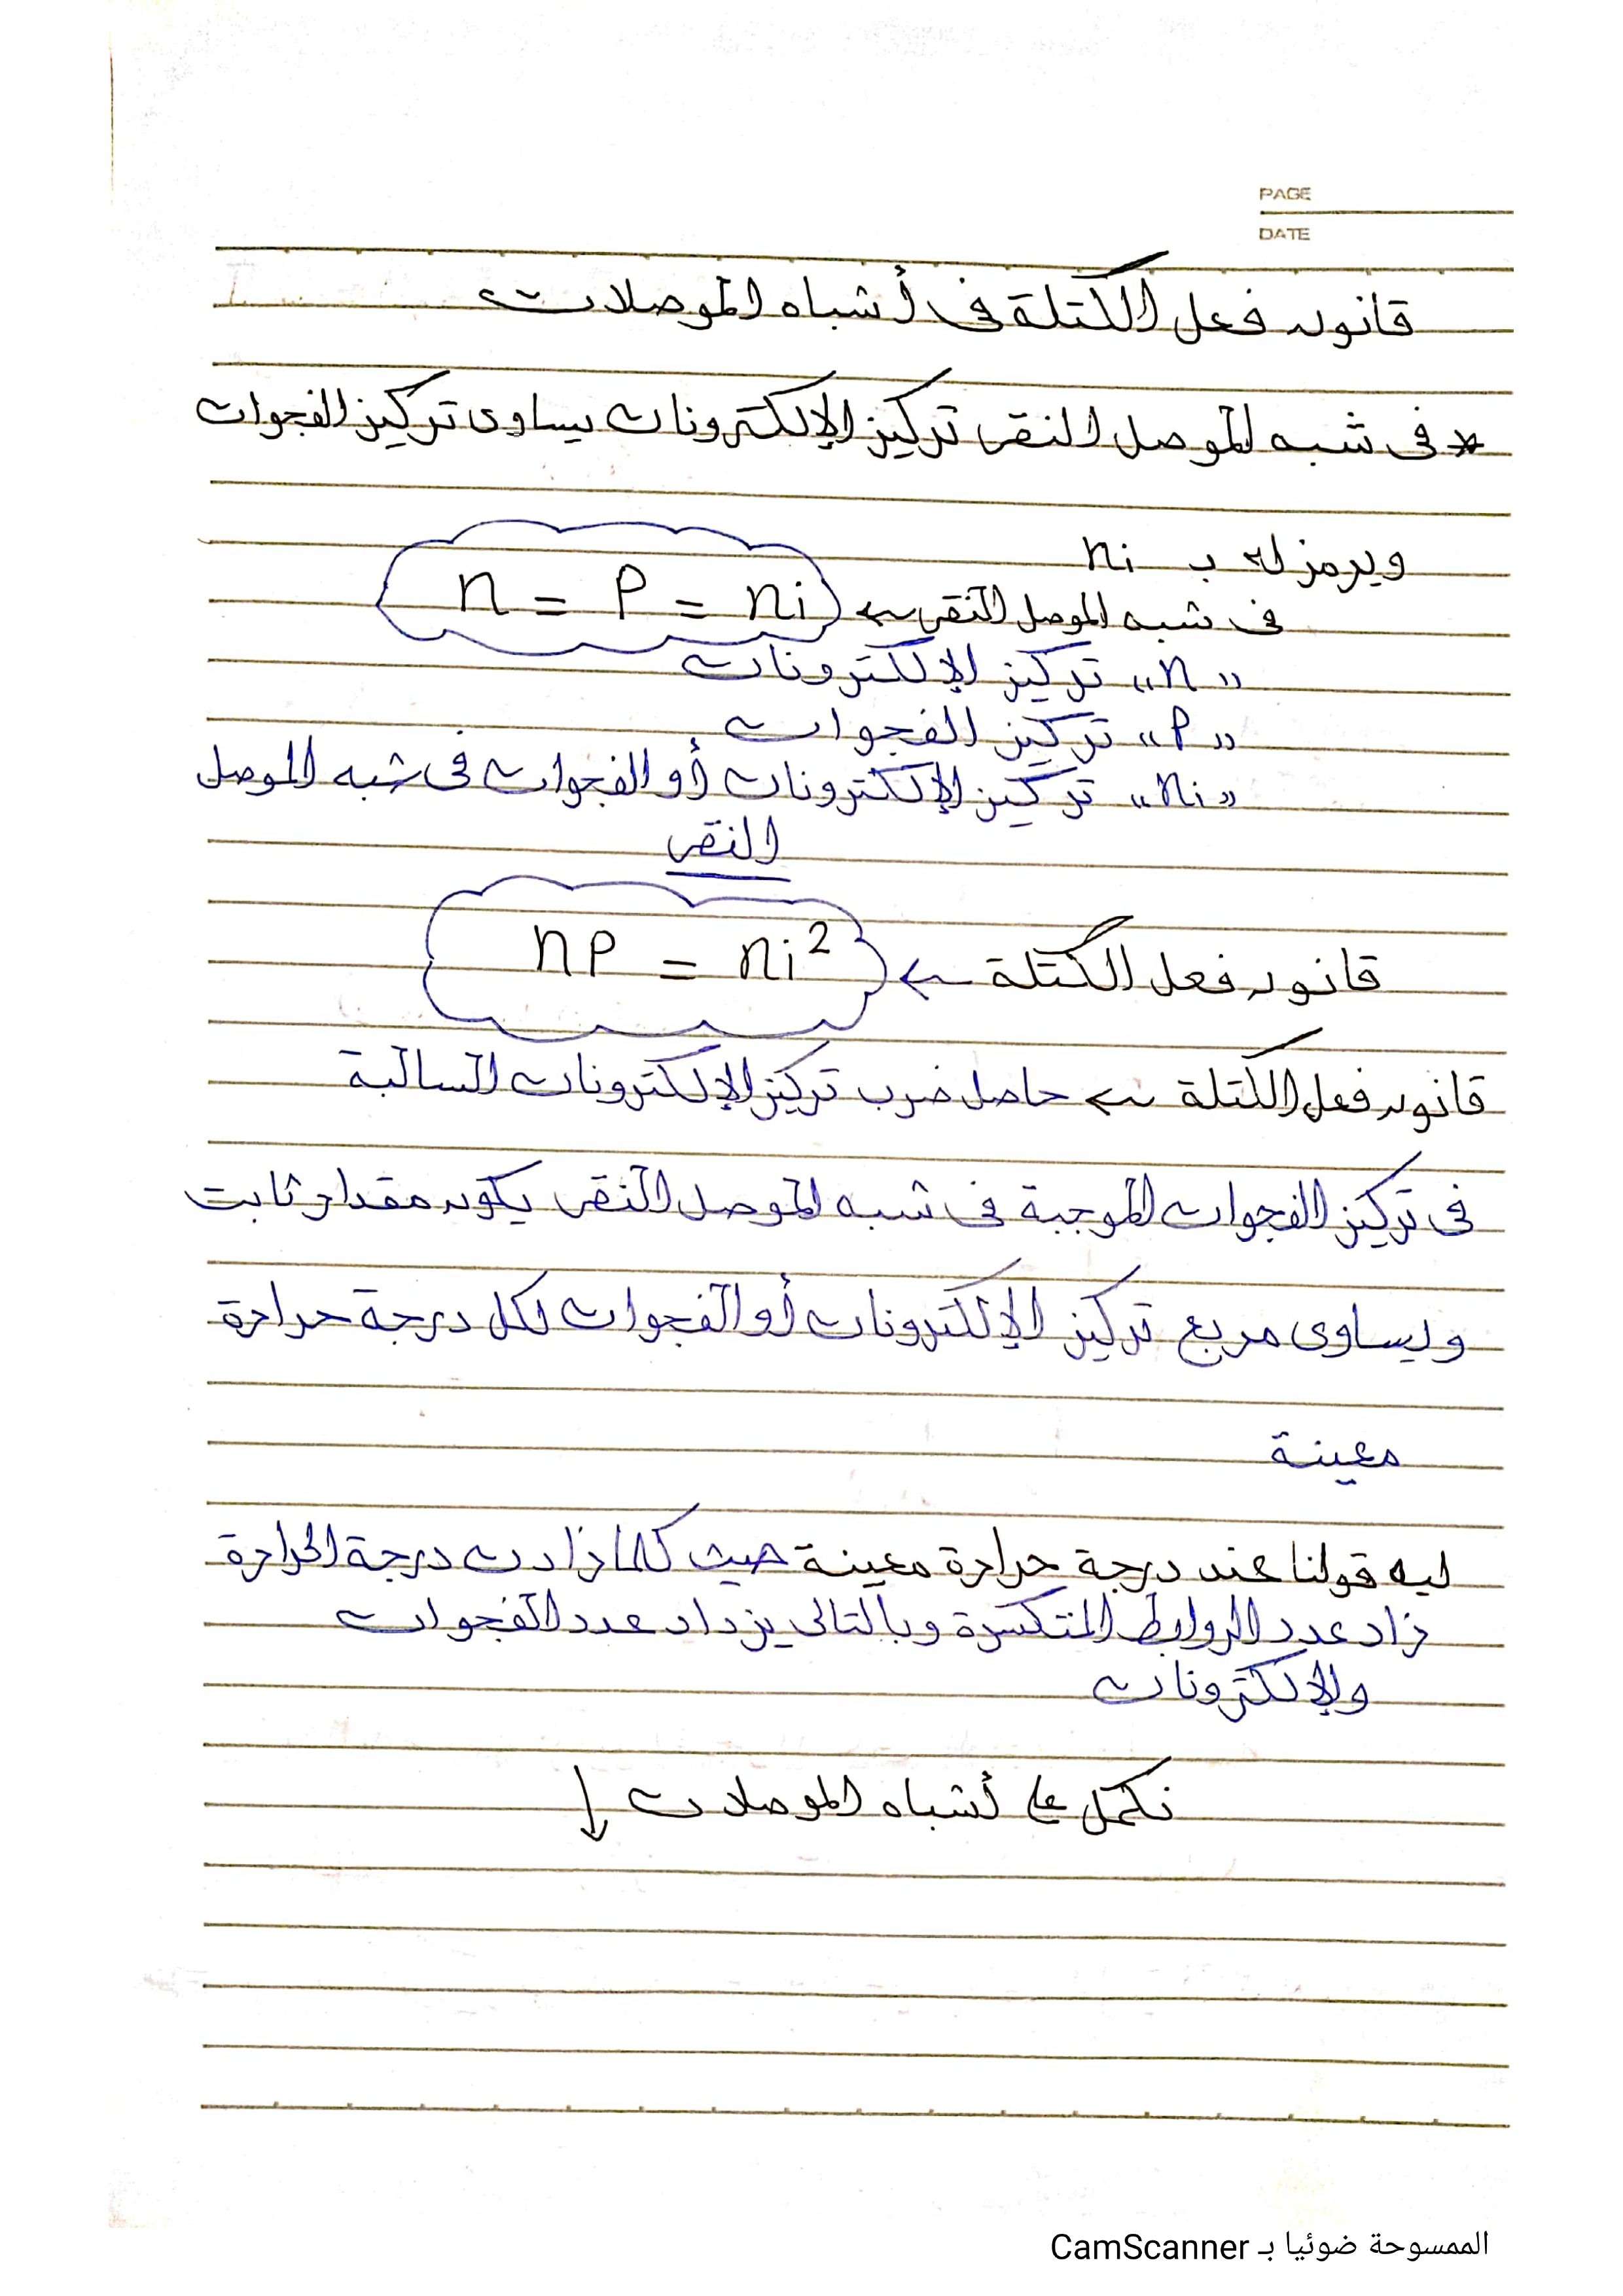 PAGE
DATE
قانون فعل الكتلة فى أشباه الموصلات
* فى شبه الموصل النقى تركيز الإلكترونات يساوى تركيز الفجوات
ويرمز له بـ ni
فى شبه الموصل النقى ← n = P = ni
"n" تركيز الإلكترونات
"P" تركيز الفجوات
"ni" تركيز الإلكترونات أو الفجوات فى شبه الموصل
النقى
قانون فعل الكتلة ← nP = ni²
قانون فعل الكتلة ← حاصل ضرب تركيز الإلكترونات السالبة
فى تركيز الفجوات الموجبة فى شبه الموصل النقى يكون مقدار ثابت
ويساوى مربع تركيز الإلكترونات أو الفجوات لكل درجة حرارة
معينة
ليه قولنا عند درجة حرارة معينة حيث كلما زادت درجة الحرارة
زاد عدد الروابط المتكسرة وبالتالى يزداد عدد الفجوات
والإلكترونات
نكمل على أشباه الموصلات ↓
الممسوحة ضوئيا بـ CamScanner